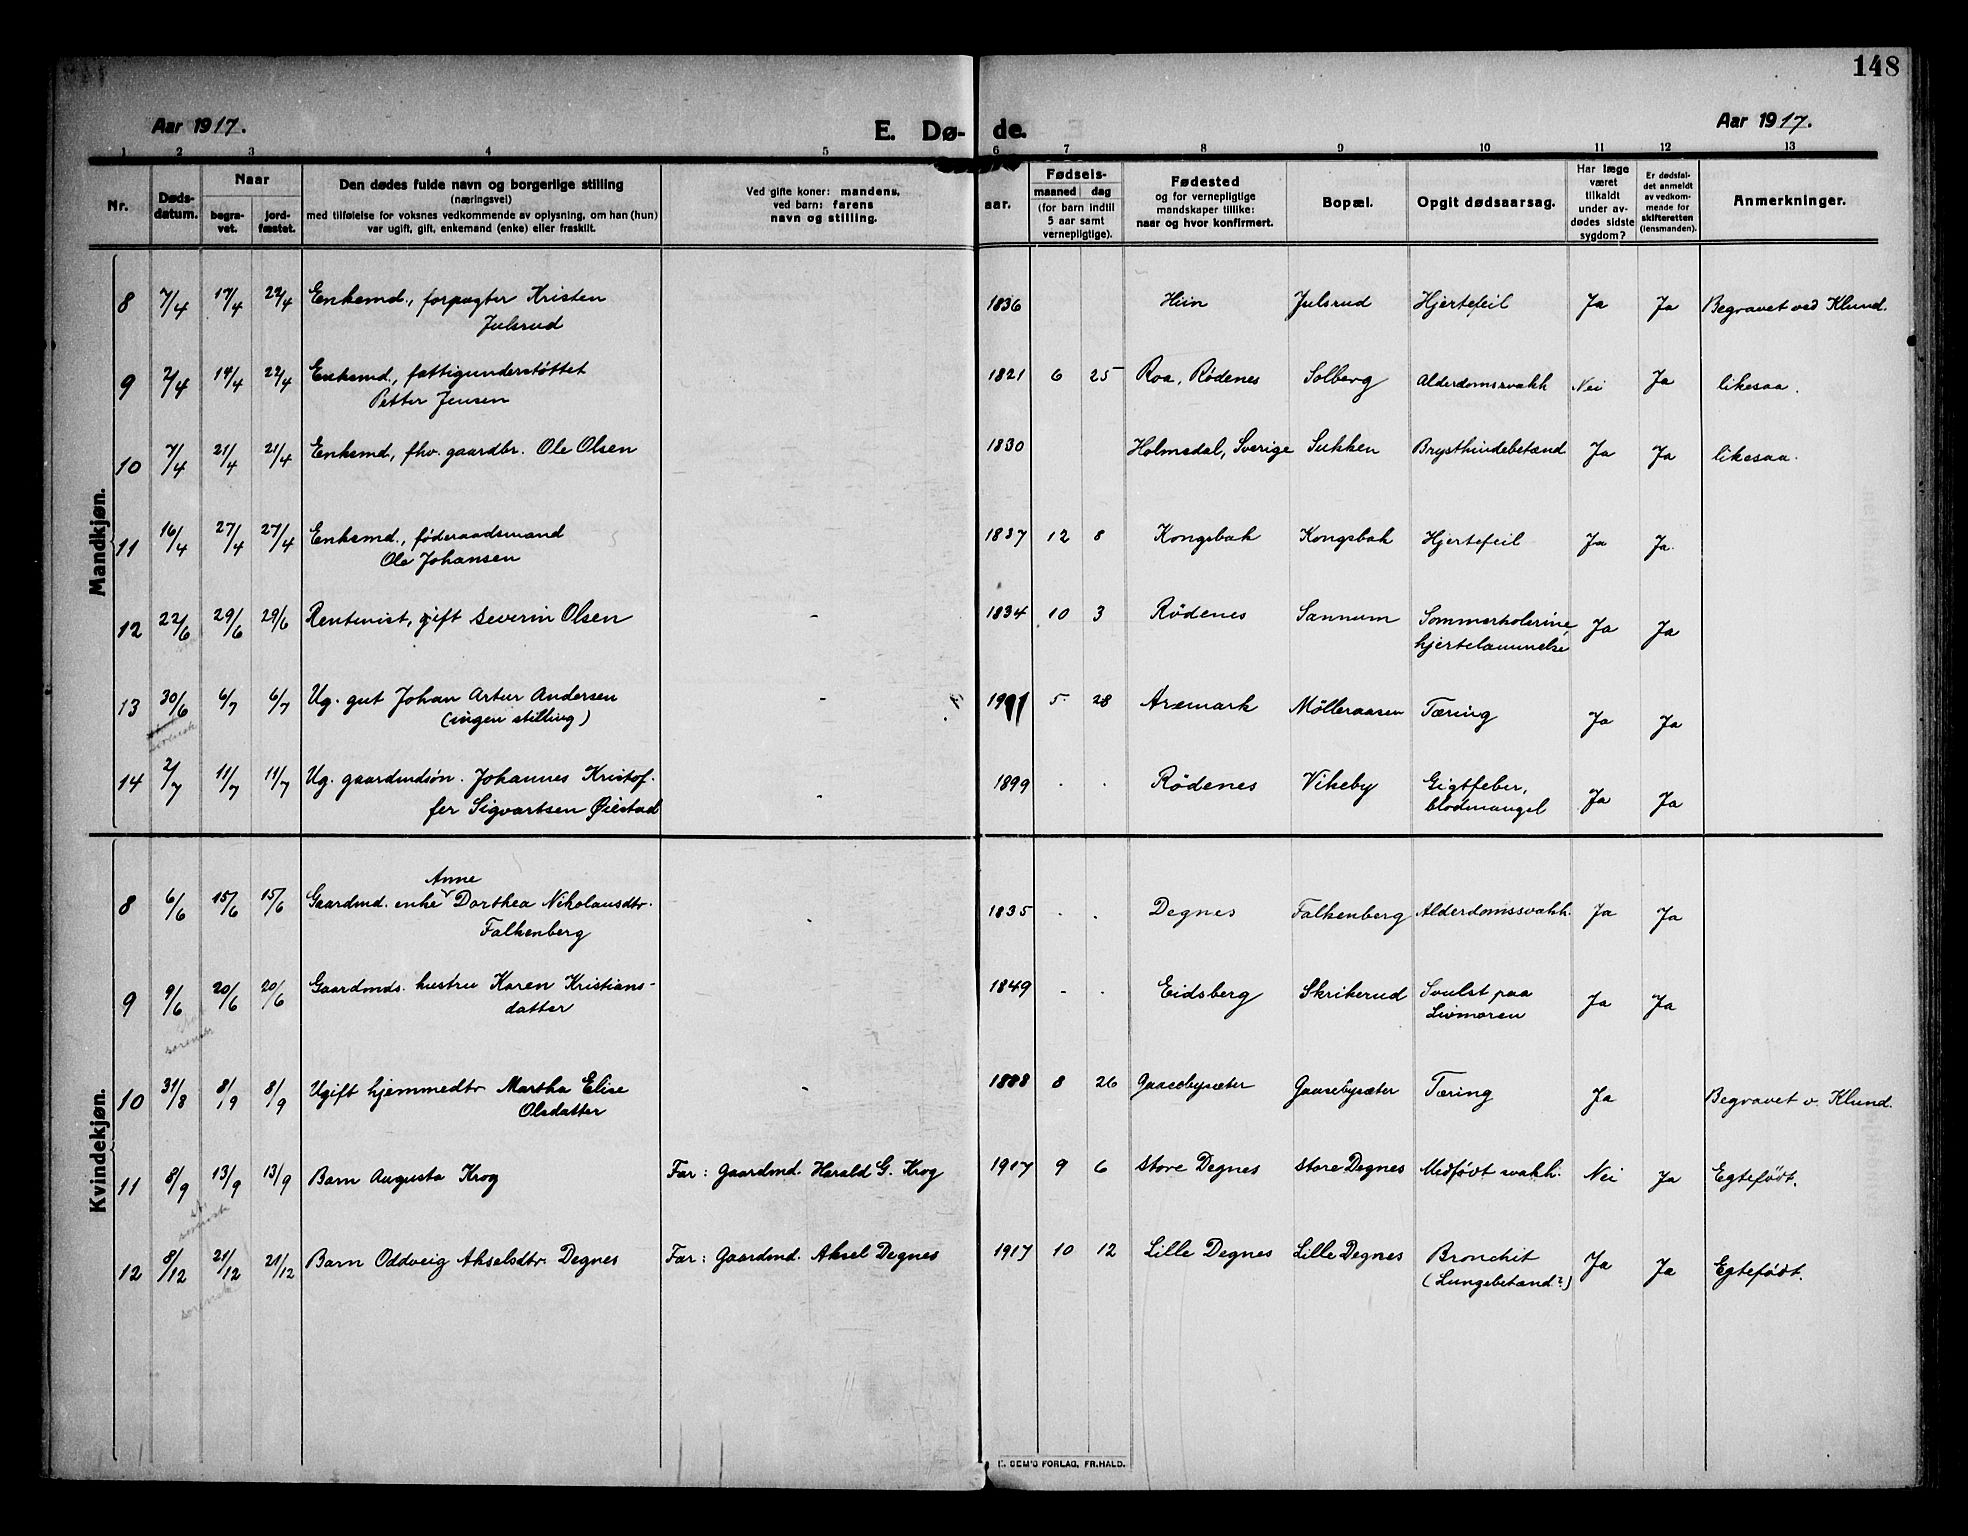 148
Aar 1917.
E. Dø- de.
Aar 1917.
1 2 3 4 5 6 7 8 9 10 11 12 13
Nr.
Døds-
datum.
Naar
begra-
vet.
jord-
fæstet.
Den dødes fulde navn og borgerlige stilling
(næringsvei)
med tilføielse for voksnes vedkommende av oplysning, om han (hun)
var ugift, gift, enkemand (enke) eller fraskilt.
Ved gifte koner: mandens,
ved barn: farens
navn og stilling.
Fødsels-
aar.
maaned dag
(for barn indtil
5 aar samt
vernepligtige).
Fødested
og for vernepligtige
mandskaper tillike:
naar og hvor konfirmert.
Bopæl.
Opgit dødsaarsag.
Har læge
været
tilkaldt
under av-
dødes sidste
sygdom?
Er dødsfal-
det anmeldt
av vedkom-
mende for
skifteretten
(lensmanden).
Anmerkninger.
Mandkjøn.
8 7/4 17/4 22/4 Enkemd., forpagter Kristen 1836 Hiin Julsrud Hjertefeil Ja Ja Begravet ved Klund.
Julsrud
9 7/4 14/4 22/4 Enkemd., fattigunderstøttet 1821 6 25 Roa, Rödenes Solberg Alderdomssvakh Nei Ja likesaa.
Petter Jensen
10 7/4 21/4 21/4 Enkemd, fhv. gaardbr. Ole Olsen 1830 Holmedal, Sverige Sukken Brysthindebetænd Ja Ja likesaa.
11 16/4 27/4 27/4 Enkemd., føderaadsmand 1837 12 8 Kongsbak Kongsbak Hjertefeil Ja Ja.
Ole Johansen
12 22/6 29/6 29/6 Rentenist, gift Severin Olsen - 1834 10 3 Rödenes Sannum Sommerkolerine, Ja Ja
hjertelammelse
13 30/6 6/7 6/7 Ug. gut Johan Artur Andersen - 5 28 Aremark Mølleraasen Tæring Ja Ja
(ingen stilling)
14 2/7 11/7 11/7 Ug. gaardmdsön. Johannes Kristof- - 1899 . . Rödenes Vikeby Gigtfeber, Ja Ja
fer Sigvartsen Øiestad blodmangel
Kvindekjøn.
Anne
8 6/6 15/6 15/6 Gaardmd. enke Dorthea Nikolausdtr. . 1835 . . Degnes Falkenberg Alderdomssvakh. Ja Ja
Falkenberg
9 9/6 20/6 20/6 Gaardmds. hustru Karen Kristians- 1849 - . Eidsberg Skrikerud Svulst paa Ja Ja
datter Livmoren
10 31/8 8/9 8/9 Ugift hjemmedtr Martha Elise - 1888 8 26 Gaasebysæter Gaasebysæter Tæring Ja Begravet v. Klund.
Olsdatter
11 8/9 13/9 13/9 Barn Augusta Krog Far: Gaardmd. Harald G. Krog 1917 9 6 Store Degnes Store Degnes Medfödt svakh. Nei Ja Egtefödt.
12 8/12 21/12 21/12 Barn Oddveig Akselsdtr. Degnes Far: Gaardmd. Aksel Degnes 1917 10 12 Lille Degnes Lille Degnes Bronchit Ja Ja Egtefödt.
(Lungebetænd?)
SEM'S FORLAG, FR.HALD.